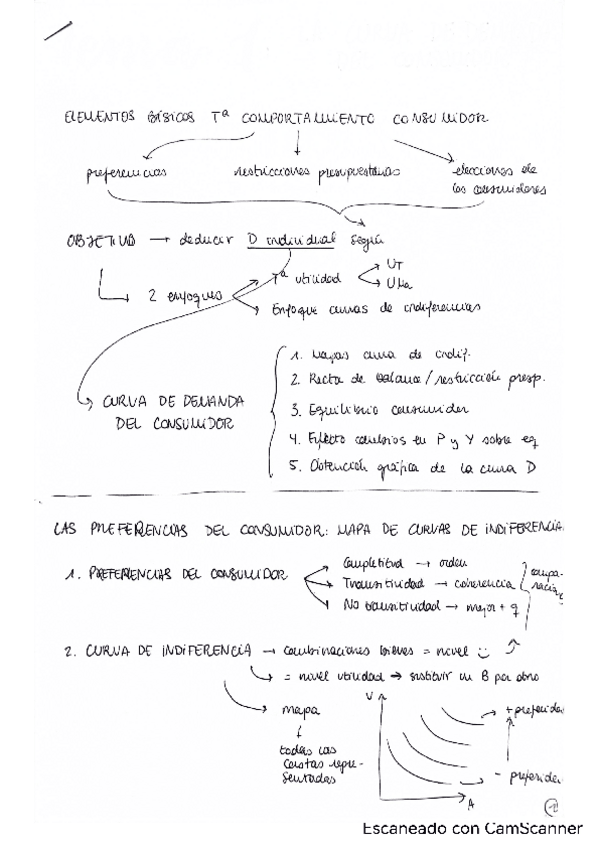 ELEMENTOS BÁSICOS Tª COMPORTAMIENTO CONSUMIDOR
preferencias restricciones presupuestarias elecciones de
los consumidores
OBJETIVO → deducir D individual según
2 enfoques
Tª utilidad
UT
UMa
Enfoque curvas de indiferencias
CURVA DE DEMANDA
DEL CONSUMIDOR
1. Mapas curva de indif.
2. Recta de balance/restricción presp.
3. Equilibrio consumidor
4. Efecto cambios en P y Y sobre eq
5. Obtención gráfica de la curva D
LAS PREFERENCIAS DEL CONSUMIDOR: MAPA DE CURVAS DE INDIFERENCIA
1. PREFERENCIAS DEL CONSUMIDOR
Completitud → orden
Transitividad → coherencia
No transitividad → mejor + q
compa-
2. CURVA DE INDIFERENCIA → combinaciones bienes = nivel :)
= nivel utilidad → sustituir un B por otro
mapa
todas las
representadas
V
A
+ preferidas
- preferidas
1
Escaneado con CamScanner